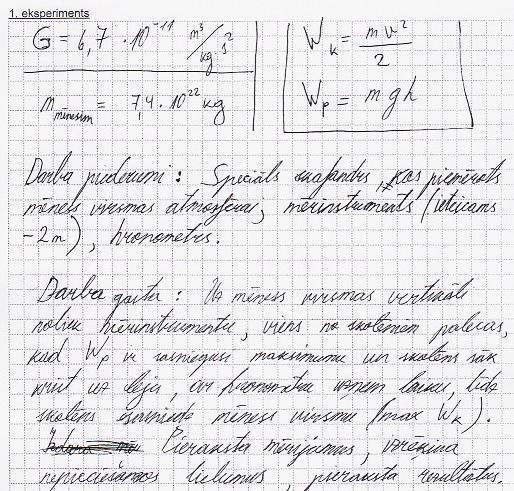 1. eksperiments
G = 6,7 · 10⁻¹¹ m³/kg·s²
W_k = mv²/2
m_mēnesim = 7,4 · 10²² kg
W_p = mgh
Darba piederumi : Speciāls skafandrs, kas piemērots
mēness virsmas atmosfērai, mērinstruments (ieteicams
-2m), hronometrs.
Darba gaita : Uz mēness virsmas vertikāli
noliek mērinstrumentu, viens no skolēniem palecas,
kad W_p ir sasniegusi maksimumu un skolēns sāk
krist uz leju, ar hronometru uzņem laiku, līdz
skolēns sasniedz mēness virsmu (max W_k).
Pieraksta mērījumus, izrēķina
nepieciešamos lielumus, pieraksta rezultātus.